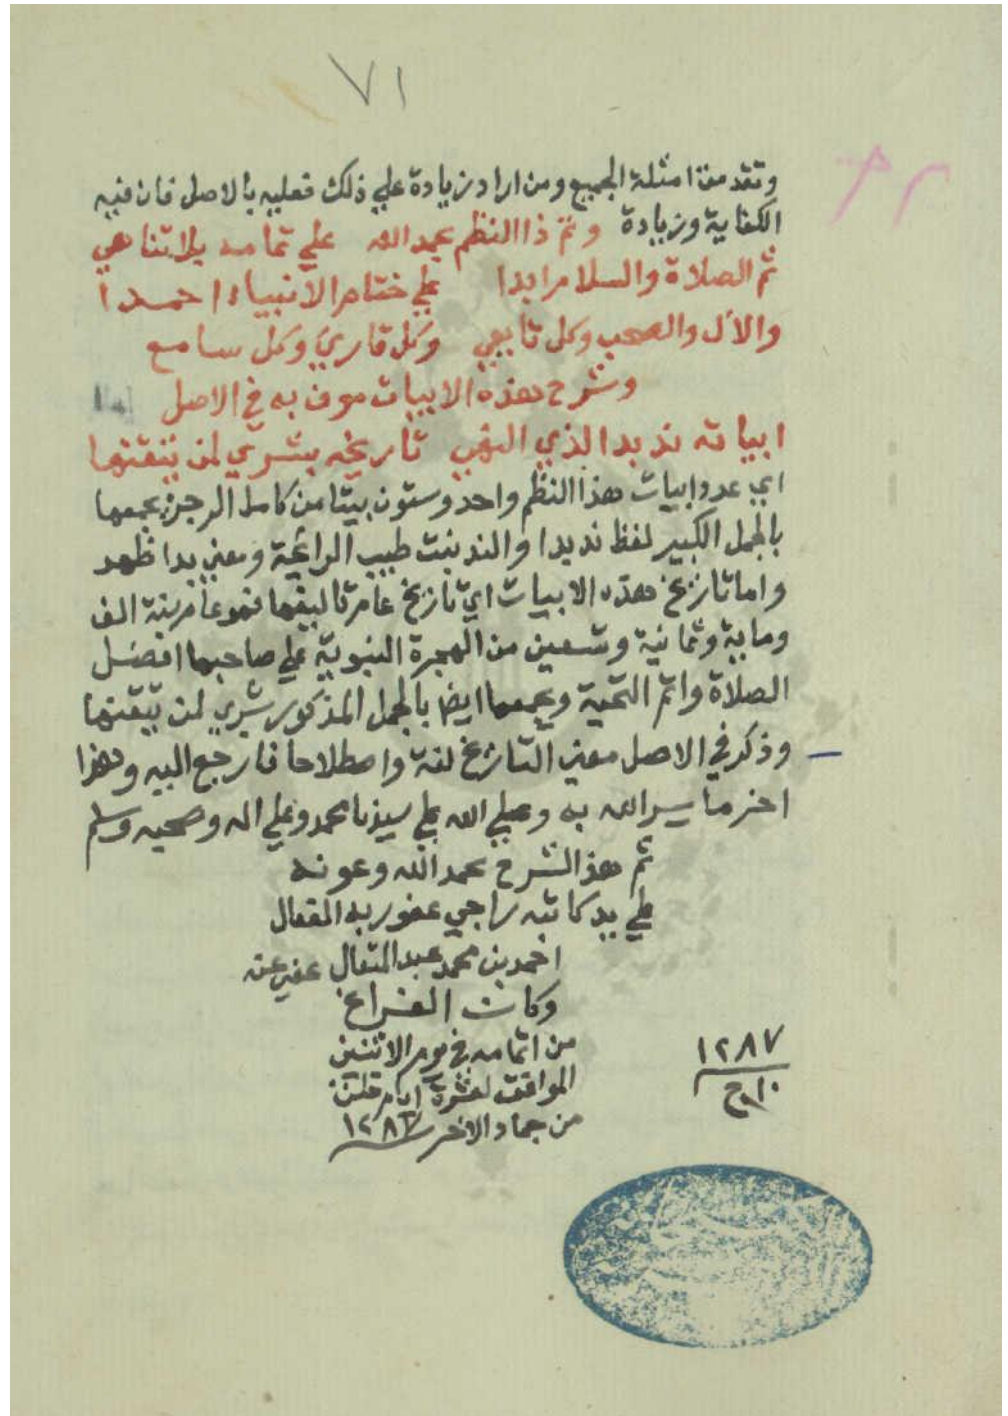 ٧١
وتقدمت امثلة الجميع ومن اراد زيادة علي ذلك فعليه بالاصل فان فيه
الكفاية وزيادة وتم ذا النظم بحمد الله علي تمامه بلا تناهي
ثم الصلاة والسلام ابدا علي ختام الانبياء احمدا
والآل والصحب وكل تابع وكل قارئ وكل سامع
وشرح هذه الابيات موف به في الاصل
ابياته ند بدا لذي النهي تاريخه بشري لمن يتقنها
اي عدد ابيات هذا النظم واحد وستون بيتا من كامل الرجز يجمعها
بالجمل الكبير لفظ ند بدا والند نبت طيب الرائحة ومعني بدا ظهر
واما تاريخ هذه الابيات اي تاريخ عام تاليفها فهو عام سنة الف
وماية وثمانية وتسعين من الهجرة النبوية علي صاحبها افضل
الصلاة واتم التحية ويجمعها ايضا بالجمل المذكور بشري لمن يتقنها
وذكر في الاصل معني التاريخ لغة واصطلاحا فارجع اليه وهذا
اخر ما يسر الله به وصلي الله علي سيدنا محمد وعلي اله وصحبه وسلم
تم هذ الشرح بحمد الله وعونه
علي يد كاتبه راجي عفو ربه المتعال
احمد بن محمد عبد المتعال عفي عنه
وكان الفراغ
من اتمامه في يوم الاثنين
الموافق لعشرة ايام خلت
من جماد الاخر ١٢٨٧
١٢٨٧
١٠ ج